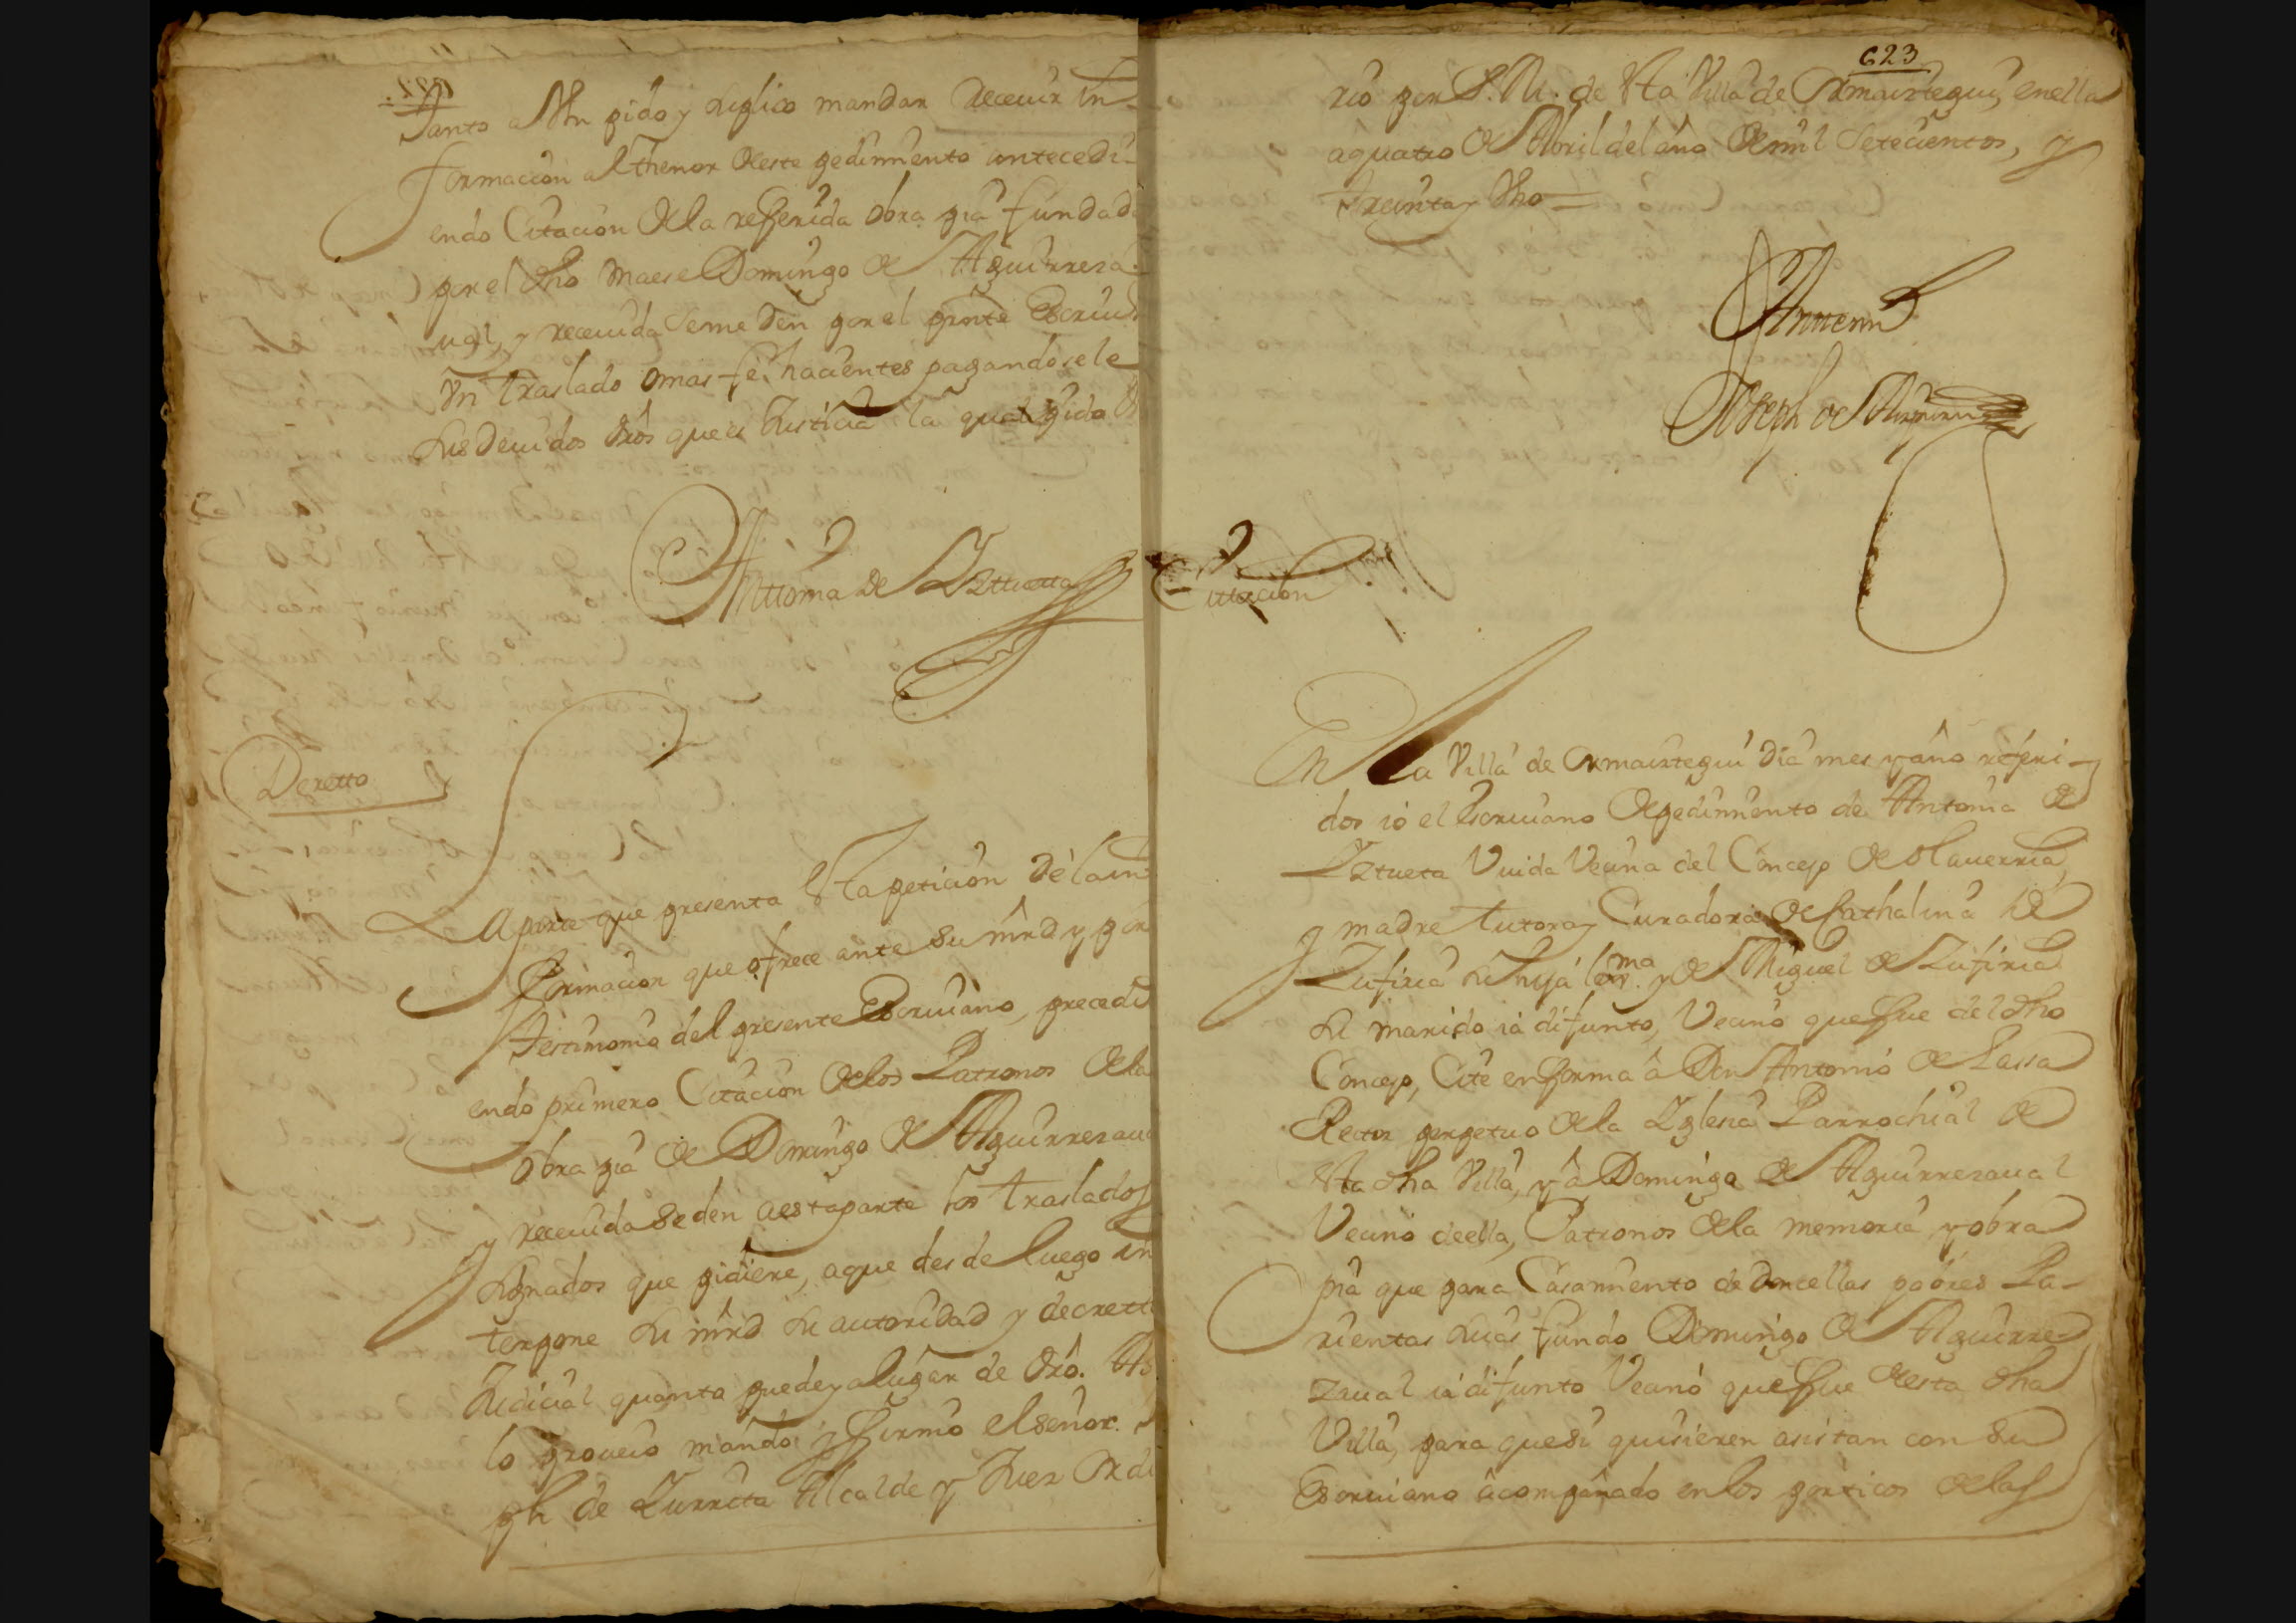 tanto a Vm pido y suplico mandar receuir in
formacion al thenor deste pedimiento antecedi
endo Citacion de la refferida obra pia fundada
por el dho Maese Domingo de Aguirreza
ual, y receuida se me den por el pnte Escriuº
vn traslado o mas fe hacientes pagandosele
sus deuidos dros que es Justicia la qual pido
Anttonia de Yzttuetta
Decretto
La parte que presenta esta peticion dé la in
formacion que ofrece ante su mrd y por
testimonio del presente Escriuano, precedi
endo primero Citacion de los Patronos de la
obra pia de Domingo de Aguirrezaua
y receuida se den a esta parte los traslados
signados que pidiere, a que desde luego in
terpone su mrd su autoridad y decretto
Judicial quanto puede y a lugar de dro. As
lo proueio mando y ffirmo el señor
ph de Zurruta Alcalde y Juez Ordi
623
rio por S.M. de esta Villa de Ormaiztegui, en ella
a quatro de Abril del año de mil setecientos, y
treinta y ocho =
Ante mi
Joseph de Aizpuru
Cittacion
En la Villa de Ormaiztegui dia mes y año referi-
dos io el Escriuano de pedimiento de Antonia de
Yztueta Viuda Vecina del Concejo de Olauerria,
y madre tutora y Curadora de Cathalina de
Zufiria su hija lexma. y de Miguel de Zufiria
su marido ia difunto, Vecino que fue del dho
Concejo, Cite en fforma â Don Antonio de Lassa
Rector perpetuo de la Yglesia Parrochial de
esta dha Villa, y â Domingo de Aguirrezaual
Vecino de ella, Patronos de la memoria y obra
pia que para Casamiento de doncellas pobres Pa-
rientas suias fundo Domingo de Aguirre-
zaual ia difunto Vecino que ffue desta dha
Villa, para que si quisieren asistan con su
Escriuano âcompañado en los porticos de las